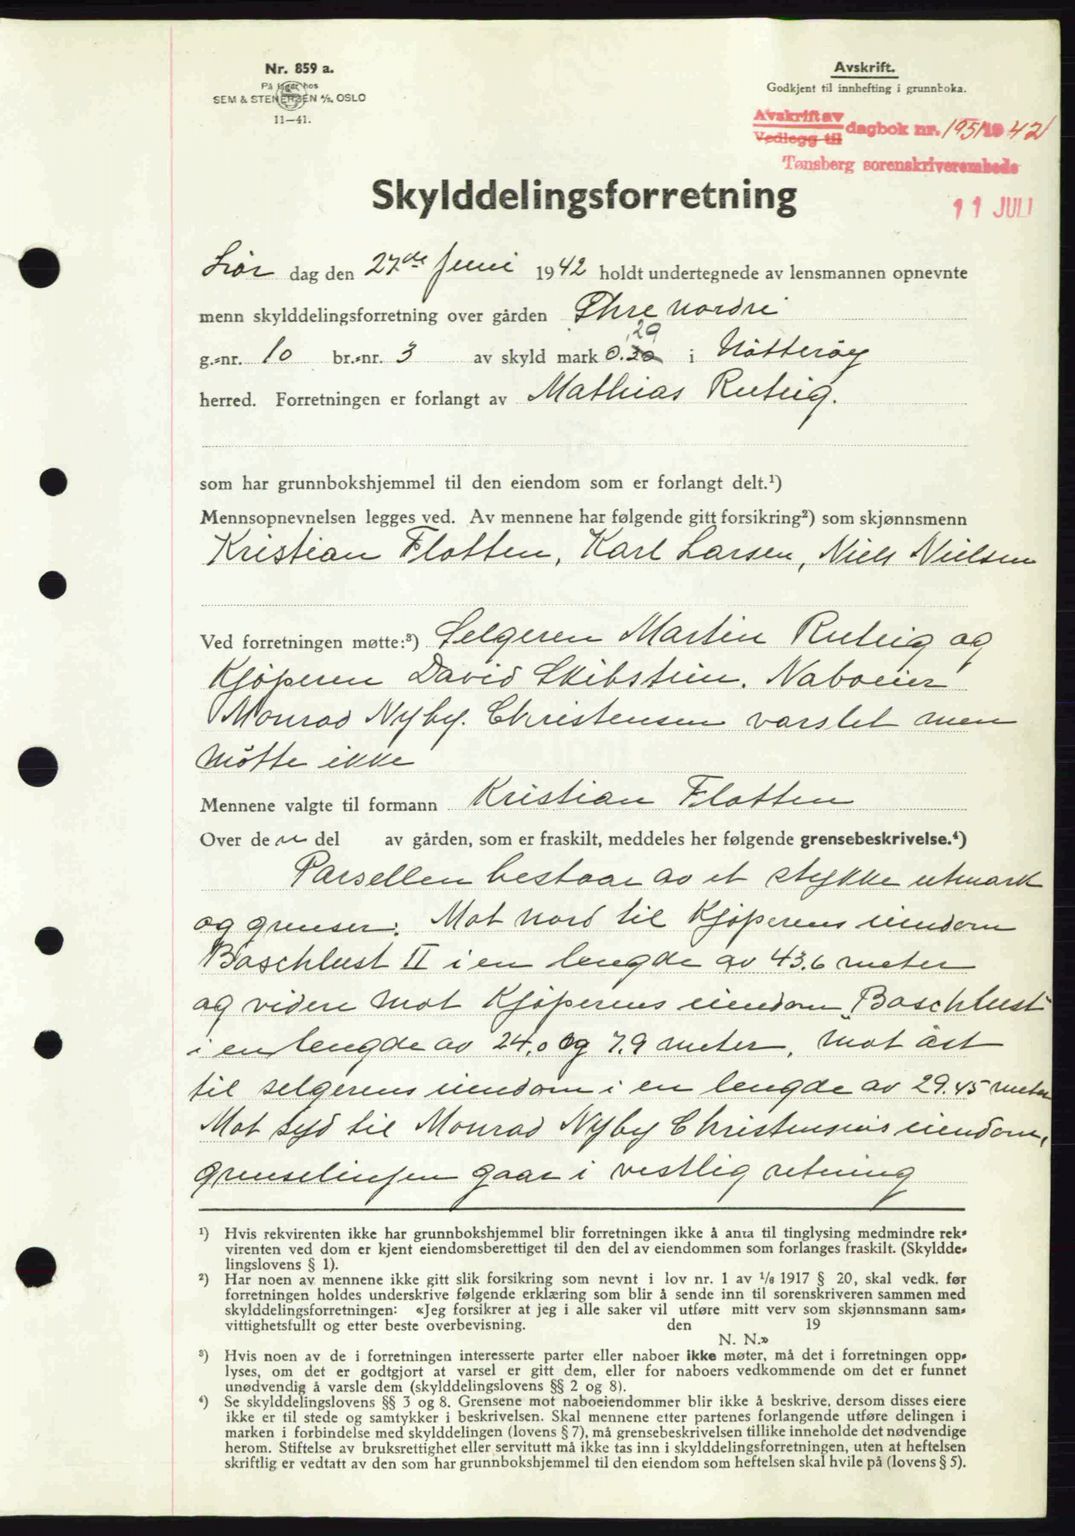 Nr. 859 a.
På lager hos
SEM & STENERSEN A/S. OSLO
11—41.
Avskrift.
Godkjent til innhefting i grunnboka.
Avskrift av
Vedlegg til
dagbok nr. 1951 1942
Tønsberg sorenskriverembede
11 JULI
Skylddelingsforretning
Lør dag den 27de Juni 1942 holdt undertegnede av lensmannen opnevnte
menn skylddelingsforretning over gården Thre nordre
g.-nr. 10 br.-nr. 3 av skyld mark 0.30 ,29 i Nøtterøy
herred. Forretningen er forlangt av Mathias Ruteig.
som har grunnbokshjemmel til den eiendom som er forlangt delt.¹)
Mennsopnevnelsen legges ved. Av mennene har følgende gitt forsikring²) som skjønnsmenn
Kristian Flotten, Karl Larsen, Niels Nielsen
Ved forretningen møtte:³) Selgeren Martin Ruteig og
Kjøperen David Skibstein. Naboeier
Monrad Nyby. Christensen varslet men
møtte ikke
Mennene valgte til formann Kristian Flotten
Over den del av gården, som er fraskilt, meddeles her følgende grensebeskrivelse.⁴)
Parsellen bestaar av et stykke utmark
og grenser: Mot nord til Kjøperens eiendom
Baschlust II i en lengde av 43,6 meter
og videre mot Kjøperens eiendom „Baschlust"
i en lengde av 24,0 og 7,9 meter, mot øst
til selgerens eiendom i en lengde av 29.45 meter
Mot syd til Monrad Nyby Christensens eiendom,
grenselinjen gaar i vestlig retning
¹) Hvis rekvirenten ikke har grunnbokshjemmel blir forretningen ikke å anta til tinglysing medmindre rek-
virenten ved dom er kjent eiendomsberettiget til den del av eiendommen som forlanges fraskilt. (Skyldde-
lingslovens § 1).
²) Har noen av mennene ikke gitt slik forsikring som nevnt i lov nr. 1 av 1/6 1917 § 20, skal vedk. før
forretningen holdes underskrive følgende erklæring som blir å sende inn til sorenskriveren sammen med
skylddelingsforretningen: «Jeg forsikrer at jeg i alle saker vil utføre mitt verv som skjønnsmann sam-
vittighetsfullt og etter beste overbevisning. den 19
N. N.»
³) Hvis noen av de i forretningen interesserte parter eller naboer ikke møter, må det i forretningen opp-
lyses, om det er godtgjort at varsel er gitt dem, eller for naboers vedkommende om det er funnet
unødvendig å varsle dem (skylddelingslovens §§ 2 og 8).
⁴) Se skylddelingslovens §§ 3 og 8. Grensene mot naboeiendommer blir ikke å beskrive, dersom disses eiere
ikke er til stede og samtykker i beskrivelsen. Skal mennene etter partenes forlangende utføre delingen i
marken i forbindelse med skylddelingen (lovens § 7), må grensebeskrivelsen tillike inneholde det nødvendige
herom. Stiftelse av bruksrettighet eller servitutt må ikke tas inn i skylddelingsforretningen, uten at heftelsen
skriftlig er vedtatt av den som har grunnbokshjemmel til den eiendom som heftelsen skal hvile på (lovens § 5).